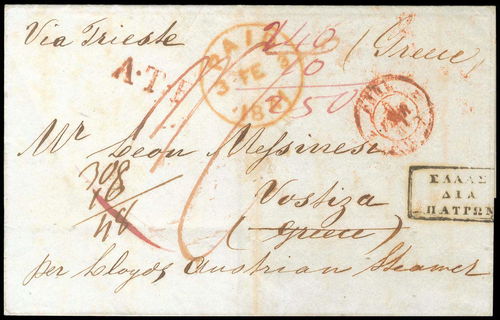 Via Trieste
(Greece)
246
10
250
PAID
3 FE 3
A.T.
Mr Leon Messinesi
Vostiza
(Greece)
308
10
48
ΕΛΛΑΣ
ΔΙΑ
ΠΑΤΡΩΝ
per Lloyds Austrian Steamer